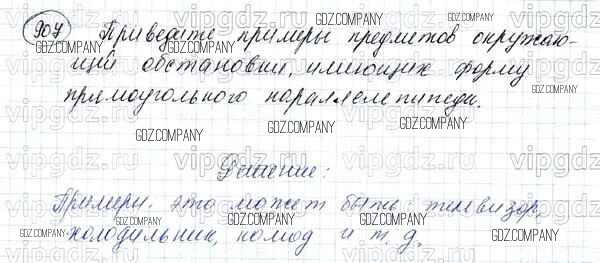 907 Приведите примеры предметов окружаю-
щей обстановки, имеющих форму
прямоугольного параллелепипеда.
Решение:
Примеры. это может быть: телевизор,
холодильник, комод и т. д.